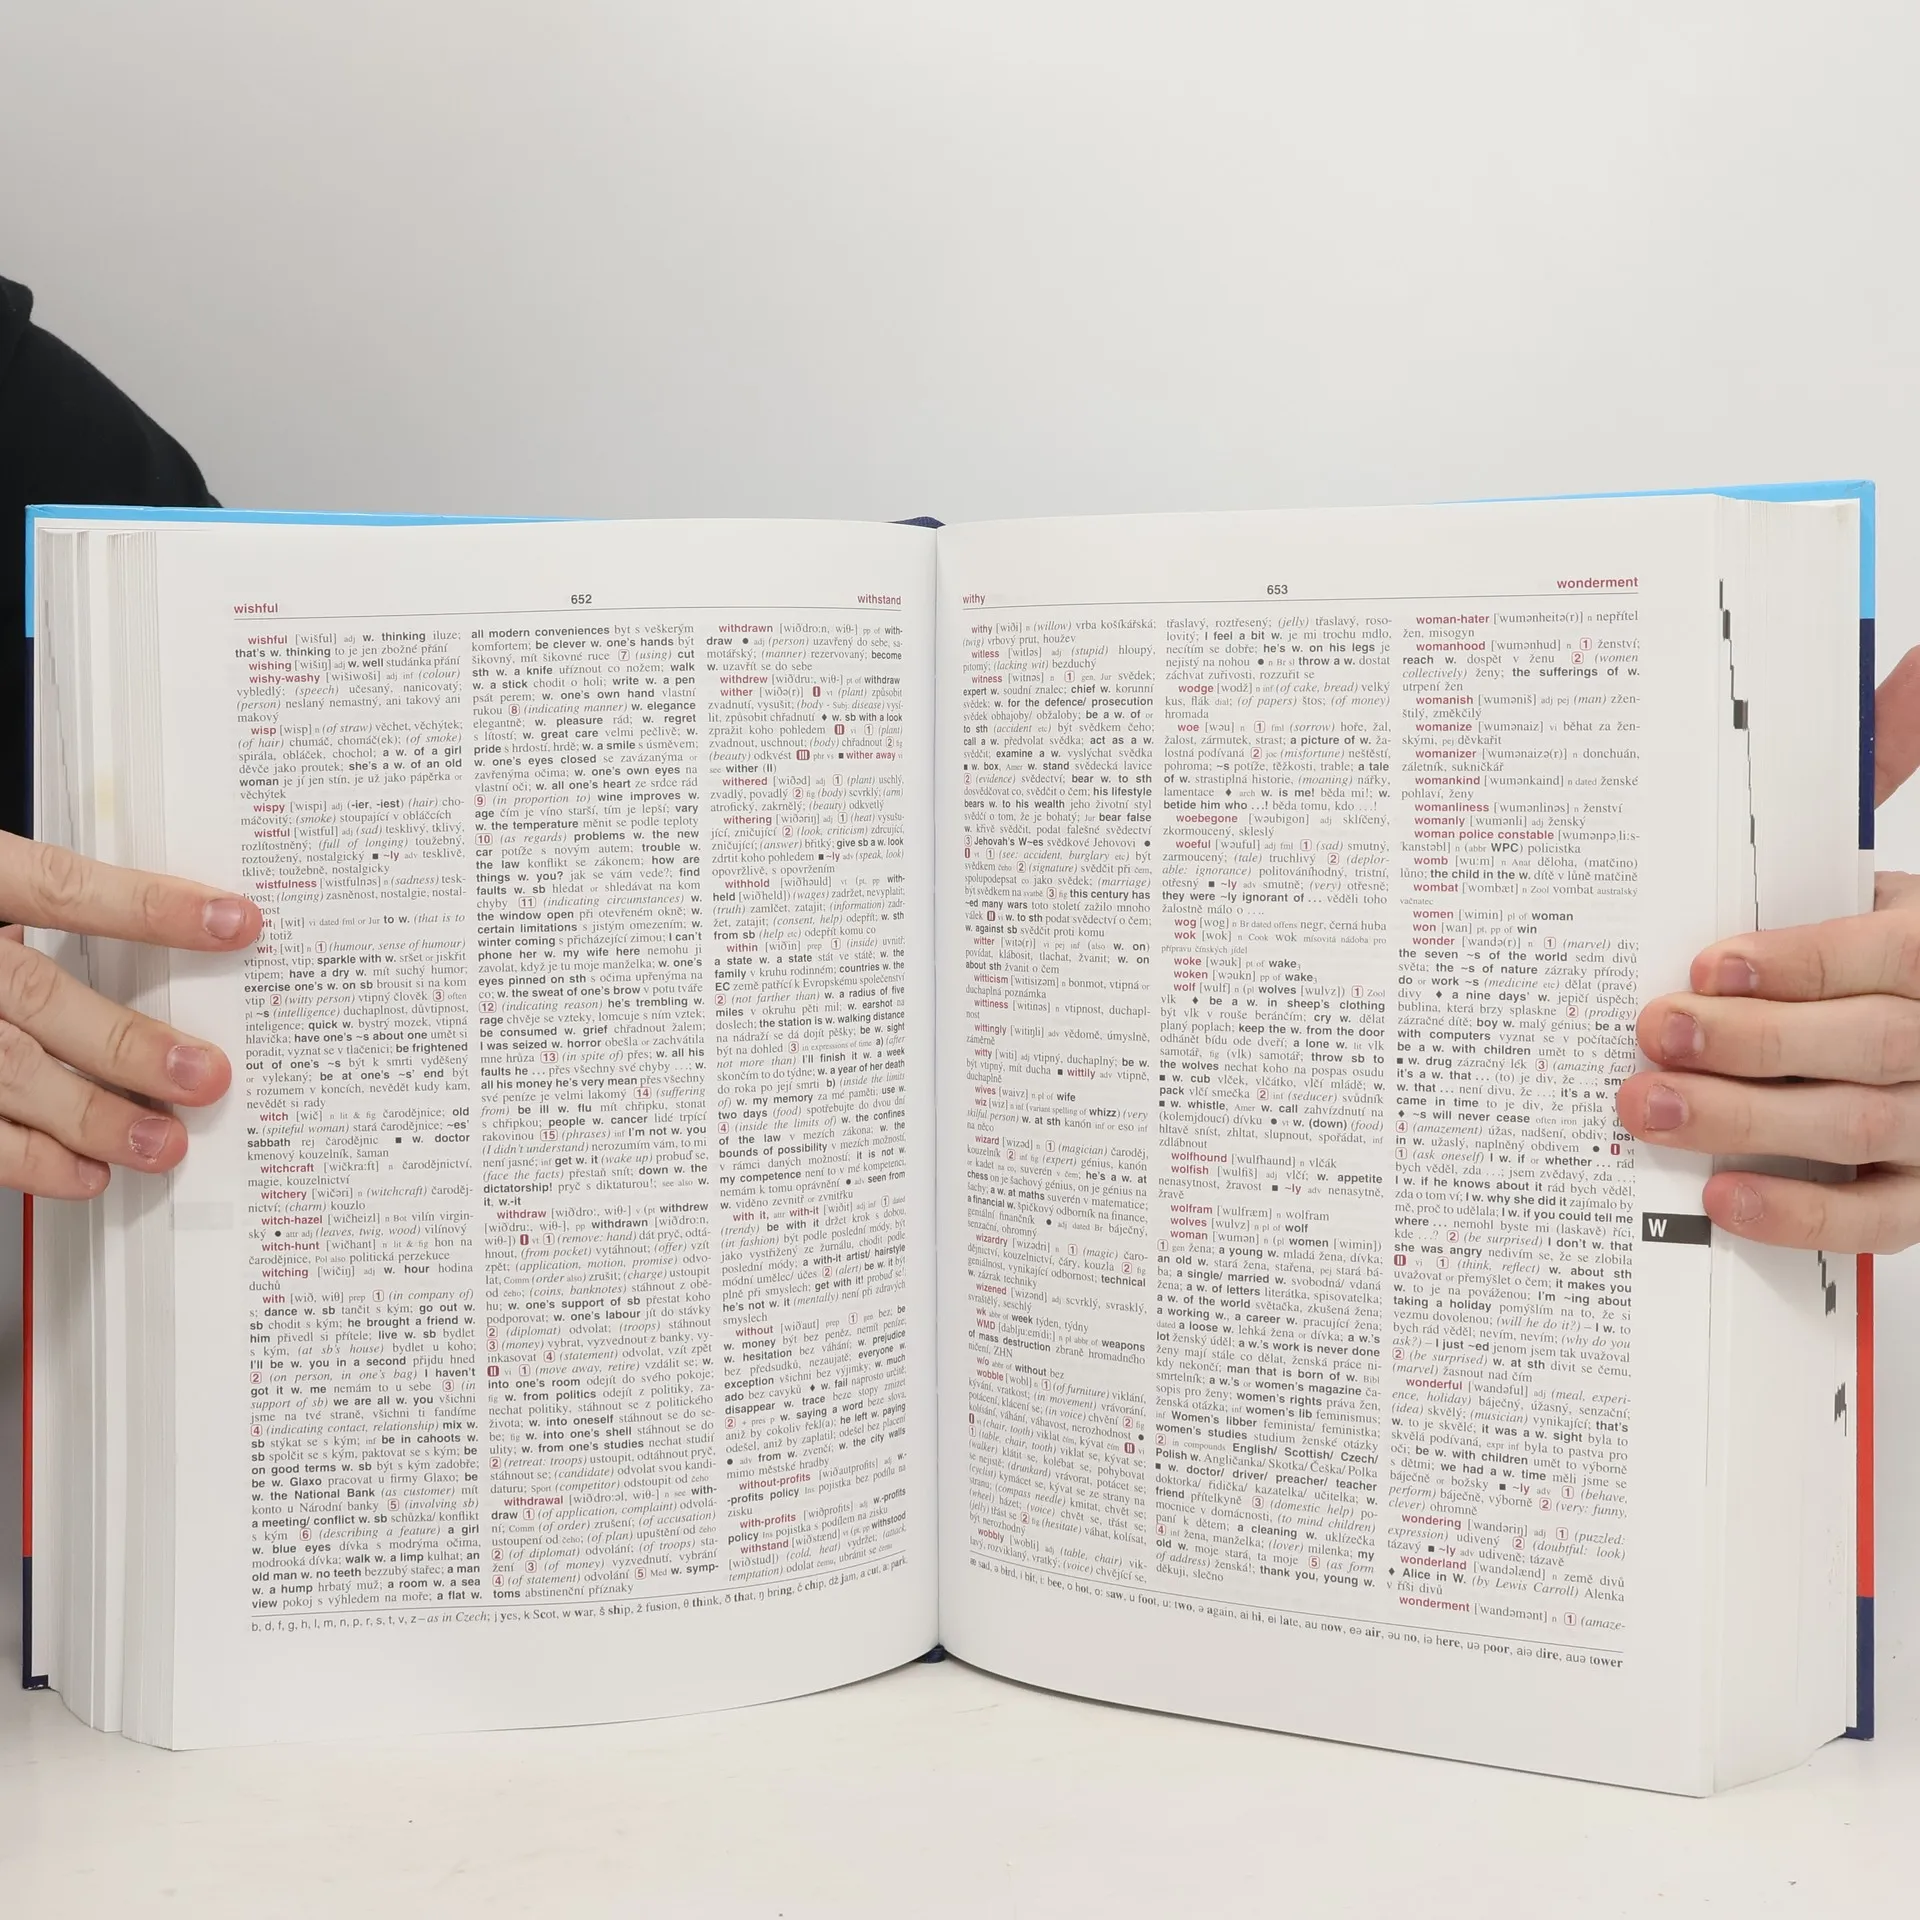 wishful 652 withstand
wishful [wišful] adj w. thinking iluze;
that's w. thinking to je jen zbožné přání
wishing [wišiŋ] adj w. well studánka přání
wishy-washy [wišiwoši] adj inf (colour)
vybledlý; (speech) učesaný, nanicovatý;
(person) neslaný nemastný, ani takový ani
makový
wisp [wisp] n (of straw) věchet, věchýtek;
(of hair) chumáč, chomáč(ek); (of smoke)
spirála, obláček, chochol; a w. of a girl
děvče jako proutek; she's a w. of an old
woman je jí jen stín, je už jako pápěrka or
věchýtek
wispy [wispi] adj (-ier, -iest) (hair) cho-
máčovitý; (smoke) stoupající v obláčcích
wistful [wistful] adj (sad) tesklivý, tklivý,
rozlítostněný; (full of longing) toužebný,
roztoužený, nostalgický ■ ~ly adv tesklivě,
tklivě; toužebně, nostalgicky
wistfulness [wistfulnəs] n (sadness) tesk-
livost; (longing) zasněnost, nostalgie, nostal-
[wit] vi dated fml or Jur to w. (that is to
totiž
wit₂ [wit] n 1 (humour, sense of humour)
vtipnost, vtip; sparkle with w. sršet or jiskřit
vtipem; have a dry w. mít suchý humor;
exercise one's w. on sb brousit si na kom
vtip 2 (witty person) vtipný člověk 3 often
pl ~s (intelligence) duchaplnost, důvtipnost,
inteligence; quick w. bystrý mozek, vtipná
hlavička; have one's ~s about one umět si
poradit, vyznat se v tlačenici; be frightened
out of one's ~s být k smrti vyděšený
or vylekaný; be at one's ~s' end být
s rozumem v koncích, nevědět kudy kam,
nevědět si rady
witch [wič] n lit & fig čarodějnice; old
w. (spiteful woman) stará čarodějnice; ~es'
sabbath rej čarodějnic ■ w. doctor
kmenový kouzelník, šaman
witchcraft [wičkra:ft] n čarodějnictví,
magie, kouzelnictví
witchery [wičəri] n (witchcraft) čaroděj-
nictví; (charm) kouzlo
witch-hazel [wičheizl] n Bot vilín virgin-
ský ● attr adj (leaves, twig, wood) vilínový
witch-hunt [wičhant] n lit & fig hon na
čarodějnice, Pol also politická perzekuce
witching [wičiŋ] adj w. hour hodina
duchů
with [wið, wiθ] prep 1 (in company of)
s; dance w. sb tančit s kým; go out w.
sb chodit s kým; he brought a friend w.
him přivedl si přítele; live w. sb bydlet
s kým, (at sb's house) bydlet u koho;
I'll be w. you in a second přijdu hned
2 (on person, in one's bag) I haven't
got it w. me nemám to u sebe 3 (in
support of sb) we are all w. you všichni
jsme na tvé straně, všichni ti fandíme
4 (indicating contact, relationship) mix w.
sb stýkat se s kým; inf be in cahoots w.
sb spolčit se s kým, paktovat se s kým; be
on good terms w. sb být s kým zadobře;
be w. Glaxo pracovat u firmy Glaxo; be
w. the National Bank (as customer) mít
konto u Národní banky 5 (involving sb)
a meeting/ conflict w. sb schůzka/ konflikt
s kým 6 (describing a feature) a girl
w. blue eyes dívka s modrýma očima,
modrooká dívka; walk w. a limp kulhat; an
old man w. no teeth bezzubý stařec; a man
w. a hump hrbatý muž; a room w. a sea
view pokoj s výhledem na moře; a flat w.
all modern conveniences byt s veškerým
komfortem; be clever w. one's hands být
šikovný, mít šikovné ruce 7 (using) cut
sth w. a knife uříznout co nožem; walk
w. a stick chodit o holi; write w. a pen
psát perem; w. one's own hand vlastní
rukou 8 (indicating manner) w. elegance
elegantně; w. pleasure rád; w. regret
s lítostí; w. great care velmi pečlivě; w.
pride s hrdostí, hrdě; w. a smile s úsměvem;
w. one's eyes closed se zavázanýma or
zavřenýma očima; w. one's own eyes na
vlastní oči; w. all one's heart ze srdce rád
9 (in proportion to) wine improves w.
age čím je víno starší, tím je lepší; vary
w. the temperature měnit se podle teploty
10 (as regards) problems w. the new
car potíže s novým autem; trouble w.
the law konflikt se zákonem; how are
things w. you? jak se vám vede?; find
faults w. sb hledat or shledávat na kom
chyby 11 (indicating circumstances) w.
the window open při otevřeném okně; w.
certain limitations s jistým omezením; w.
winter coming s přicházející zimou; I can't
phone her w. my wife here nemohu jí
zavolat, když je tu moje manželka; w. one's
eyes pinned on sth s očima upřenýma na
co; w. the sweat of one's brow v potu tváře
12 (indicating reason) he's trembling w.
rage chvěje se vzteky, lomcuje s ním vztek;
be consumed w. grief chřadnout žalem;
I was seized w. horror obešla or zachvátila
mne hrůza 13 (in spite of) přes; w. all his
faults he … přes všechny své chyby …; w.
all his money he's very mean přes všechny
své peníze je velmi lakomý 14 (suffering
from) be ill w. flu mít chřipku, stonat
s chřipkou; people w. cancer lidé trpící
rakovinou 15 (phrases) inf I'm not w. you
(I didn't understand) nerozumím vám, to mi
není jasné; inf get w. it (wake up) probuď se,
(face the facts) přestaň snít; down w. the
dictatorship! pryč s diktaturou!; see also w.
it, w.-it
withdraw [wiðdro:, wiθ-] v (pt withdrew
[wiðdru:, wiθ-], pp withdrawn [wiðdro:n,
wiθ-]) I vt 1 (remove: hand) dát pryč, odtá-
hnout, (from pocket) vytáhnout; (offer) vzít
zpět; (application, motion, promise) odvo-
lat, Comm (order also) zrušit; (charge) ustoupit
od čeho; (coins, banknotes) stáhnout z obě-
hu; w. one's support of sb přestat koho
podporovat; w. one's labour jít do stávky
2 (diplomat) odvolat; (troops) stáhnout
3 (money) vybrat, vyzvednout z banky, vy-
inkasovat 4 (statement) odvolat, vzít zpět
II vi 1 (move away, retire) vzdálit se; w.
into one's room odejít do svého pokoje;
fig w. from politics odejít z politiky, za-
nechat politiky, stáhnout se z politického
života; w. into oneself stáhnout se do se-
be; fig w. into one's shell stáhnout se do
ulity; w. from one's studies nechat studií
2 (retreat: troops) ustoupit, odtáhnout pryč,
stáhnout se; (candidate) odvolat svou kandi-
daturu; Sport (competitor) odstoupit od čeho
withdrawal [wiðdro:əl, wiθ-] n see with-
draw 1 (of application, complaint) odvolá-
ní; Comm (of order) zrušení; (of accusation)
ustoupení od čeho; (of plan) upuštění od čeho
2 (of diplomat) odvolání; (of troops) sta-
žení 3 (of money) vyzvednutí, vybrání
4 (of statement) odvolání 5 Med w. symp-
toms abstinenční příznaky
withdrawn [wiðdro:n, wiθ-] pp of with-
draw ● adj (person) uzavřený do sebe, sa-
motářský; (manner) rezervovaný; become
w. uzavřít se do sebe
withdrew [wiðdru:, wiθ-] pt of withdraw
wither [wiðə(r)] I vt (plant) způsobit
zvadnutí, vysušit; (body - Subj: disease) vysí-
lit, způsobit chřadnutí ♦ w. sb with a look
zpražit koho pohledem II vi 1 (plant)
zvadnout, uschnout; (body) chřadnout 2 fig
(beauty) odkvést III phr vs ■ wither away vi
see wither (II)
withered [wiðəd] adj 1 (plant) uschlý,
zvadlý, povadlý 2 fig (body) scvrklý; (arm)
atrofický, zakrnělý; (beauty) odkvetlý
withering [wiðəriŋ] adj 1 (heat) vysušu-
jící, zničující 2 (look, criticism) zdrcující,
zničující; (answer) břitký; give sb a w. look
zdrtit koho pohledem ■ ~ly adv (speak, look)
opovržlivě, s opovržením
withhold [wiðhəuld] vt (pt, pp with-
held [wiðheld]) (wages) zadržet, nevyplatit;
(truth) zamlčet, zatajit; (information) zadr-
žet, zatajit; (consent, help) odepřít; w. sth
from sb (help etc) odepřít komu co
within [wiðin] prep 1 (inside) uvnitř;
a state w. a state stát ve státě; w. the
family v kruhu rodinném; countries w. the
EC země patřící k Evropskému společenství
2 (not farther than) w. a radius of five
miles v okruhu pěti mil; w. earshot na
doslech; the station is w. walking distance
na nádraží se dá dojít pěšky; be w. sight
být na dohled 3 in expressions of time a) (after
not more than) I'll finish it w. a week
skončím to do týdne; w. a year of her death
do roka po její smrti b) (inside the limits
of) w. my memory za mé paměti; use w.
two days (food) spotřebujte do dvou dní
4 (inside the limits of) w. the confines
of the law v mezích zákona; w. the
bounds of possibility v mezích možností,
v rámci daných možností; it is not w.
my competence není to v mé kompetenci,
nemám k tomu oprávnění ● adv seen from
w. viděno zevnitř or zvnitřku
with it, attr with-it [wiðit] adj inf 1 dated
(trendy) be with it držet krok s dobou,
(in fashion) být podle poslední módy, být
jako vystřižený ze žurnálu, chodit podle
poslední módy; a with-it artist/ hairstyle
módní umělec/ účes 2 (alert) be w. it být
plně při smyslech; get with it! probuď se!;
he's not w. it (mentally) není při zdravých
smyslech
without [wiðaut] prep 1 gen bez; be
w. money být bez peněz, nemít peníze;
w. hesitation bez váhání; w. prejudice
bez předsudků, nezaujatě; everyone w.
exception všichni bez výjimky; w. much
ado bez cavyků ♦ w. fail naprosto určitě;
disappear w. trace beze stopy zmizet
2 + pres p w. saying a word beze slova,
aniž by cokoliv řekl(a); he left w. paying
odešel, aniž by zaplatil; odešel bez placení
● adv from w. zvenčí; w. the city walls
mimo městské hradby
without-profits [wiðautprofits] adj w.-
-profits policy Ins pojistka bez podílu na
zisku
with-profits [wiðprofits] adj w.-profits
policy Ins pojistka s podílem na zisku
withstand [wiðstænd] vt (pt, pp withstood
[wiðstud]) (cold, heat) vydržet; (attack,
temptation) odolat čemu, ubránit se čemu
b, d, f, g, h, l, m, n, p, r, s, t, v, z – as in Czech; j yes, k Scot, w war, š ship, ž fusion, θ think, ð that, ŋ bring, č chip, dž jam, a cut, a: park,
withy 653 wonderment
withy [wiði] n (willow) vrba košíkářská;
(twig) vrbový prut, houžev
witless [witləs] adj (stupid) hloupý,
pitomý; (lacking wit) bezduchý
witness [witnəs] n 1 gen, Jur svědek;
expert w. soudní znalec; chief w. korunní
svědek; w. for the defence/ prosecution
svědek obhajoby/ obžaloby; be a w. of or
to sth (accident etc) být svědkem čeho;
call a w. předvolat svědka; act as a w.
svědčit; examine a w. vyslýchat svědka
■ w. box, Amer w. stand svědecká lavice
2 (evidence) svědectví; bear w. to sth
dosvědčovat co, svědčit o čem; his lifestyle
bears w. to his wealth jeho životní styl
svědčí o tom, že je bohatý; Jur bear false
w. křivě svědčit, podat falešné svědectví
3 Jehovah's W~es svědkové Jehovovi ●
I vt 1 (see: accident, burglary etc) být
svědkem čeho 2 (signature) svědčit při čem,
spolupodepsat co jako svědek; (marriage)
být svědkem na svatbě 3 fig this century has
~ed many wars toto století zažilo mnoho
válek II vi w. to sth podat svědectví o čem;
w. against sb svědčit proti komu
witter [witə(r)] vi pej inf (also w. on)
povídat, klábosit, tlachat, žvanit; w. on
about sth žvanit o čem
witticism [witisizəm] n bonmot, vtipná or
duchaplná poznámka
wittiness [witinəs] n vtipnost, duchapl-
nost
wittingly [witiŋli] adv vědomě, úmyslně,
záměrně
witty [witi] adj vtipný, duchaplný; be w.
být vtipný, mít ducha ■ wittily adv vtipně,
duchaplně
wives [waivz] n pl of wife
wiz [wiz] n inf (variant spelling of whizz) (very
skilful person) w. at sth kanón inf or eso inf
na něco
wizard [wizəd] n 1 (magician) čaroděj,
kouzelník 2 inf fig (expert) génius, kanón
or kadet na co, suverén v čem; he's a w. at
chess on je šachový génius, on je génius na
šachy; a w. at maths suverén v matematice;
a financial w. špičkový odborník na finance,
geniální finančník ● adj dated Br báječný,
senzační, ohromný
wizardry [wizədri] n 1 (magic) čaro-
dějnictví, kouzelnictví, čáry, kouzla 2 fig
geniálnost, vynikající odbornost; technical
w. zázrak techniky
wizened [wizənd] adj scvrklý, svrasklý,
svraštělý, seschlý
wk abbr of week týden, týdny
WMD [dabljuemdi:] n pl abbr of weapons
of mass destruction zbraně hromadného
ničení, ZHN
w/o abbr of without bez
wobble [wobl] n 1 (of furniture) viklání,
kývání, vratkost; (in movement) vrávorání,
potácení, klácení se; (in voice) chvění 2 fig
kolísání, váhání, váhavost, nerozhodnost ●
I vt (chair, tooth) viklat čím, kývat čím II vi
1 (table, chair, tooth) viklat se, kývat se;
(walker) klátit se, kolébat se, pohybovat
se nejistě; (drunkard) vrávorat, potácet se;
(cyclist) kymácet se, kývat se ze strany na
stranu; (compass needle) kmitat, chvět se;
(wheel) házet; (voice) chvět se, třást se;
(jelly) třást se 2 fig (hesitate) váhat, kolísat,
být nerozhodný
wobbly [wobli] adj (table, chair) vik-
lavý, rozviklaný, vratký; (voice) chvějící se,
třaslavý, roztřesený; (jelly) třaslavý, roso-
lovitý; I feel a bit w. je mi trochu mdlo,
necítím se dobře; he's w. on his legs je
nejistý na nohou ● n Br sl throw a w. dostat
záchvat zuřivosti, rozzuřit se
wodge [wodž] n inf (of cake, bread) velký
kus, flák dial; (of papers) štos; (of money)
hromada
woe [wəu] n 1 fml (sorrow) hoře, žal,
žalost, zármutek, strast; a picture of w. ža-
lostná podívaná 2 joc (misfortune) neštěstí,
pohroma; ~s potíže, těžkosti, trable; a tale
of w. strastiplná historie, (moaning) nářky,
lamentace ♦ arch w. is me! běda mi!; w.
betide him who …! běda tomu, kdo …!
woebegone [wəubigon] adj sklíčený,
zkormoucený, skleslý
woeful [wəuful] adj fml 1 (sad) smutný,
zarmoucený; (tale) truchlivý 2 (deplor-
able: ignorance) politováníhodný, tristní,
otřesný ■ ~ly adv smutně; (very) otřesně;
they were ~ly ignorant of … věděli toho
žalostně málo o …
wog [wog] n Br dated offens negr, černá huba
wok [wok] n Cook wok mísovitá nádoba pro
přípravu čínských jídel
woke [wəuk] pt of wake₁
woken [wəukn] pp of wake₁
wolf [wulf] n (pl wolves [wulvz]) 1 Zool
vlk ♦ be a w. in sheep's clothing
být vlk v rouše beránčím; cry w. dělat
planý poplach; keep the w. from the door
odhánět bídu ode dveří; a lone w. lit vlk
samotář, fig (vlk) samotář; throw sb to
the wolves nechat koho na pospas osudu
■ w. cub vlček, vlčátko, vlčí mládě; w.
pack vlčí smečka 2 inf (seducer) svůdník
■ w. whistle, Amer w. call zahvízdnutí na
(kolemjdoucí) dívku ● vt w. (down) (food)
hltavě sníst, zhltat, slupnout, spořádat, inf
zdlábnout
wolfhound [wulfhaund] n vlčák
wolfish [wulfiš] adj vlčí; w. appetite
nenasytnost, žravost ■ ~ly adv nenasytně,
žravě
wolfram [wulfræm] n wolfram
wolves [wulvz] n pl of wolf
woman [wumən] n (pl women [wimin])
1 gen žena; a young w. mladá žena, dívka;
an old w. stará žena, stařena, pej stará bá-
ba; a single/ married w. svobodná/ vdaná
žena; a w. of letters literátka, spisovatelka;
a w. of the world světačka, zkušená žena;
a working w., a career w. pracující žena;
dated a loose w. lehká žena or dívka; a w.'s
lot ženský úděl; a w.'s work is never done
ženy mají stále co dělat, ženská práce ni-
kdy nekončí; man that is born of w. Bibl
smrtelník; a w.'s or women's magazine ča-
sopis pro ženy; women's rights práva žen,
ženská otázka; inf women's lib feminismus;
inf Women's libber feminista/ feministka;
women's studies studium ženské otázky
2 in compounds English/ Scottish/ Czech/
Polish w. Angličanka/ Skotka/ Češka/ Polka
■ w. doctor/ driver/ preacher/ teacher
doktorka/ řidička/ kazatelka/ učitelka; w.
friend přítelkyně 3 (domestic help) po-
mocnice v domácnosti, (to mind children)
paní k dětem; a cleaning w. uklízečka
4 inf žena, manželka; (lover) milenka; my
old w. moje stará, ta moje 5 (as form
of address) ženská!; thank you, young w.
děkuji, slečno
woman-hater [wumənheitə(r)] n nepřítel
žen, misogyn
womanhood [wumənhud] n 1 ženství;
reach w. dospět v ženu 2 (women
collectively) ženy; the sufferings of w.
utrpení žen
womanish [wuməniš] adj pej (man) zžen-
štilý, změkčilý
womanize [wumənaiz] vi běhat za žen-
skými, pej děvkařit
womanizer [wumənaizə(r)] n donchuán,
záletník, sukničkář
womankind [wumənkaind] n dated ženské
pohlaví, ženy
womanliness [wumənlinəs] n ženství
womanly [wumənli] adj ženský
woman police constable [wumənpə,li:s-
kanstəbl] n (abbr WPC) policistka
womb [wu:m] n Anat děloha, (matčino)
lůno; the child in the w. dítě v lůně matčině
wombat [wombæt] n Zool vombat australský
vačnatec
women [wimin] pl of woman
won [wan] pt, pp of win
wonder [wandə(r)] n 1 (marvel) div;
the seven ~s of the world sedm divů
světa; the ~s of nature zázraky přírody;
do or work ~s (medicine etc) dělat (pravé)
divy ♦ a nine days' w. jepičí úspěch;
bublina, která brzy splaskne 2 (prodigy)
zázračné dítě; boy w. malý génius; be a w.
with computers vyznat se v počítačích;
be a w. with children umět to s dětmi
■ w. drug zázračný lék 3 (amazing fact)
it's a w. that … (to) je div, že …;
w. that … není divu, že …; it's a w.
came in time to je div, že přišla
♦ ~s will never cease often iron jaký
4 (amazement) úžas, nadšení, obdiv; lost
in w. užaslý, naplněný obdivem ● I vt
1 (ask oneself) I w. if or whether … rád
bych věděl, zda …; jsem zvědavý, zda …;
I w. if he knows about it rád bych věděl,
zda o tom ví; I w. why she did it zajímalo by
mě, proč to udělala; I w. if you could tell me
where … nemohl byste mi (laskavě) říci,
kde …? 2 (be surprised) I don't w. that
she was angry nedivím se, že se zlobila
II vi 1 (think, reflect) w. about sth
uvažovat or přemýšlet o čem; it makes you
w. to je na pováženou; I'm ~ing about
taking a holiday pomýšlím na to, že si
vezmu dovolenou; (will he do it?) – I w. to
bych rád věděl; nevím, nevím; (why do you
ask?) – I just ~ed jenom jsem tak uvažoval
2 (be surprised) w. at sth divit se čemu,
(marvel) žasnout nad čím
wonderful [wandəful] adj (meal, experi-
ence, holiday) báječný, úžasný, senzační;
(idea) skvělý; (musician) vynikající; that's
w. to je skvělé; it was a w. sight byla to
skvělá podívaná, expr inf byla to pastva pro
oči; be w. with children umět to výborně
s dětmi; we had a w. time měli jsme se
báječně or božsky ■ ~ly adv 1 (behave,
perform) báječně, výborně 2 (very: funny,
clever) ohromně
wondering [wandəriŋ] adj 1 (puzzled:
expression) udivený 2 (doubtful: look)
tázavý ■ ~ly adv udiveně; tázavě
wonderland [wandəlænd] n země divů
♦ Alice in W. (by Lewis Carroll) Alenka
v říši divů
wonderment [wandəmənt] n 1 (amaze-
W
æ sad, ə bird, i bit, i: bee, o hot, o: saw, u foot, u: two, ə again, ai hi, ei late, au now, eə air, əu no, iə here, uə poor, aiə dire, auə tower